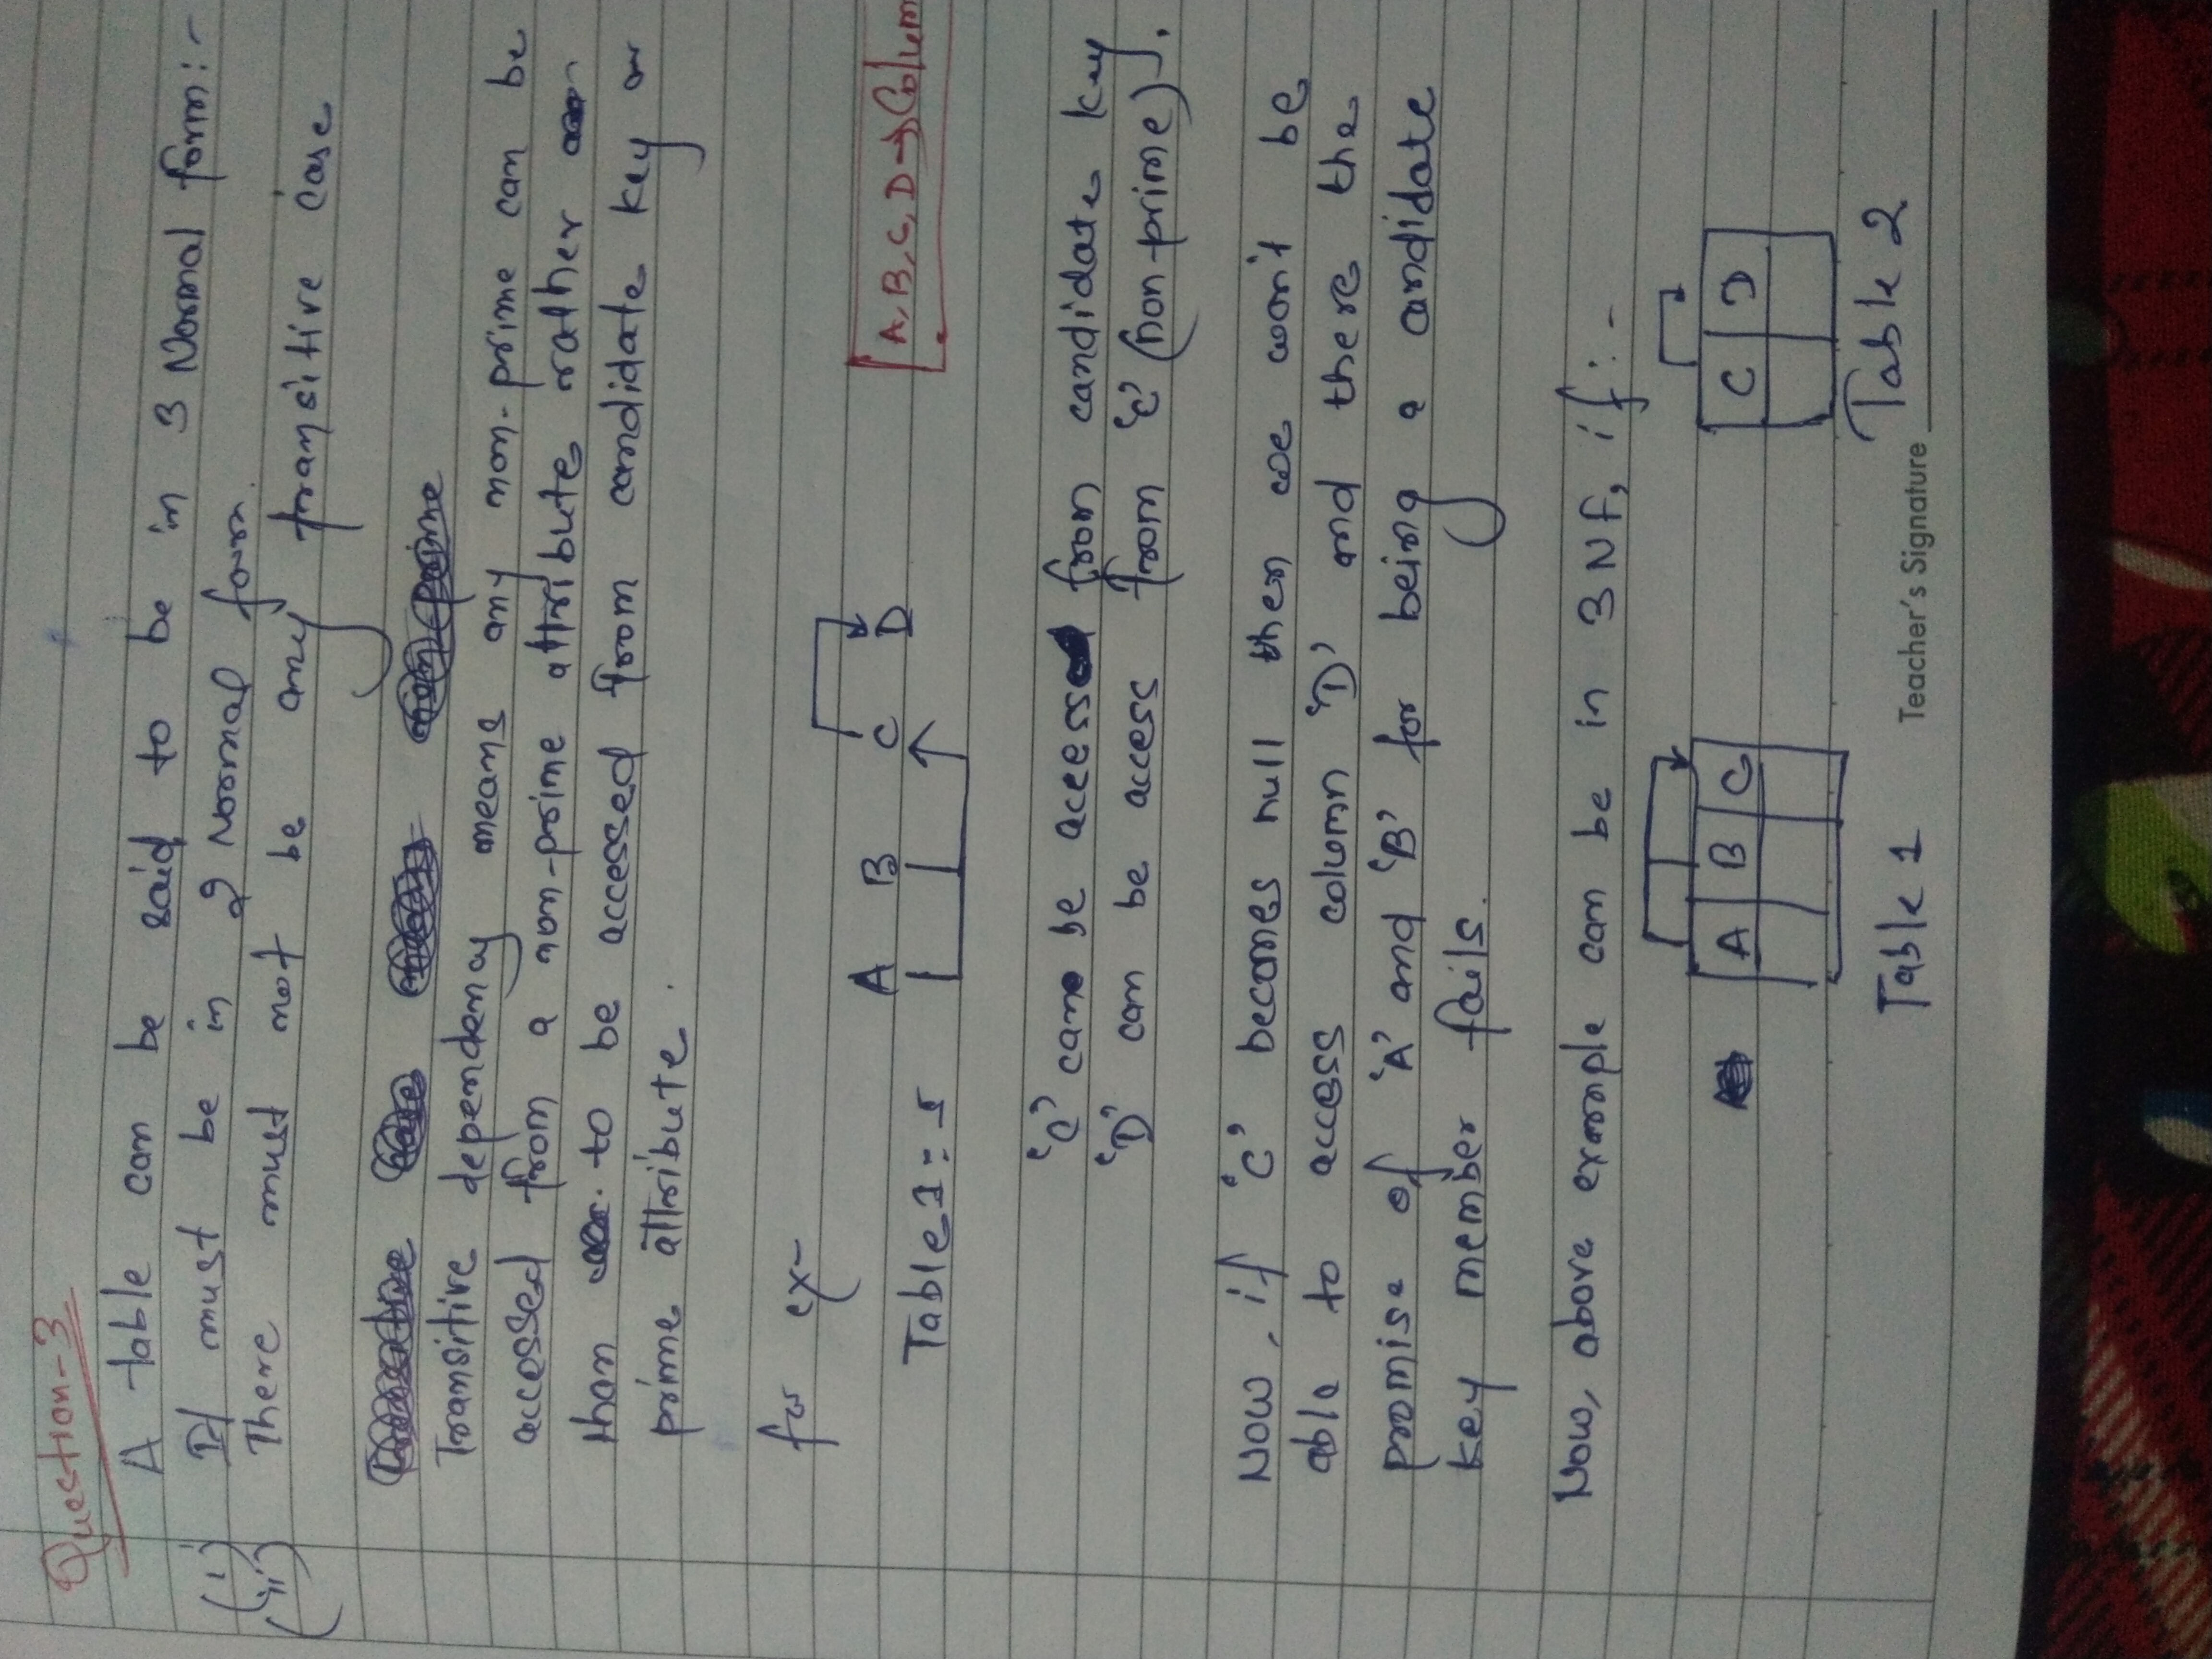 Question-3
A table can be said to be in 3 Normal form:-
(i) It must be in 2 Normal form.
(ii) There must not be any transitive case
Transitive dependency means any non-prime can be
accessed from a non-prime attribute rather
than to be accessed from candidate key or
prime attribute.
for ex-
A B C D
Table 1:-
A, B, C, D → Colum
'C' can be access from candidate key
'D' can be access from 'C' (non-prime).
Now, if 'C' becomes null then we won't be
able to access column 'D' and there the
promise of 'A' and 'B' for being a candidate
key member fails.
Now, above example can be in 3NF, if:-
A B C C D
Table 1 Table 2
Teacher's Signature